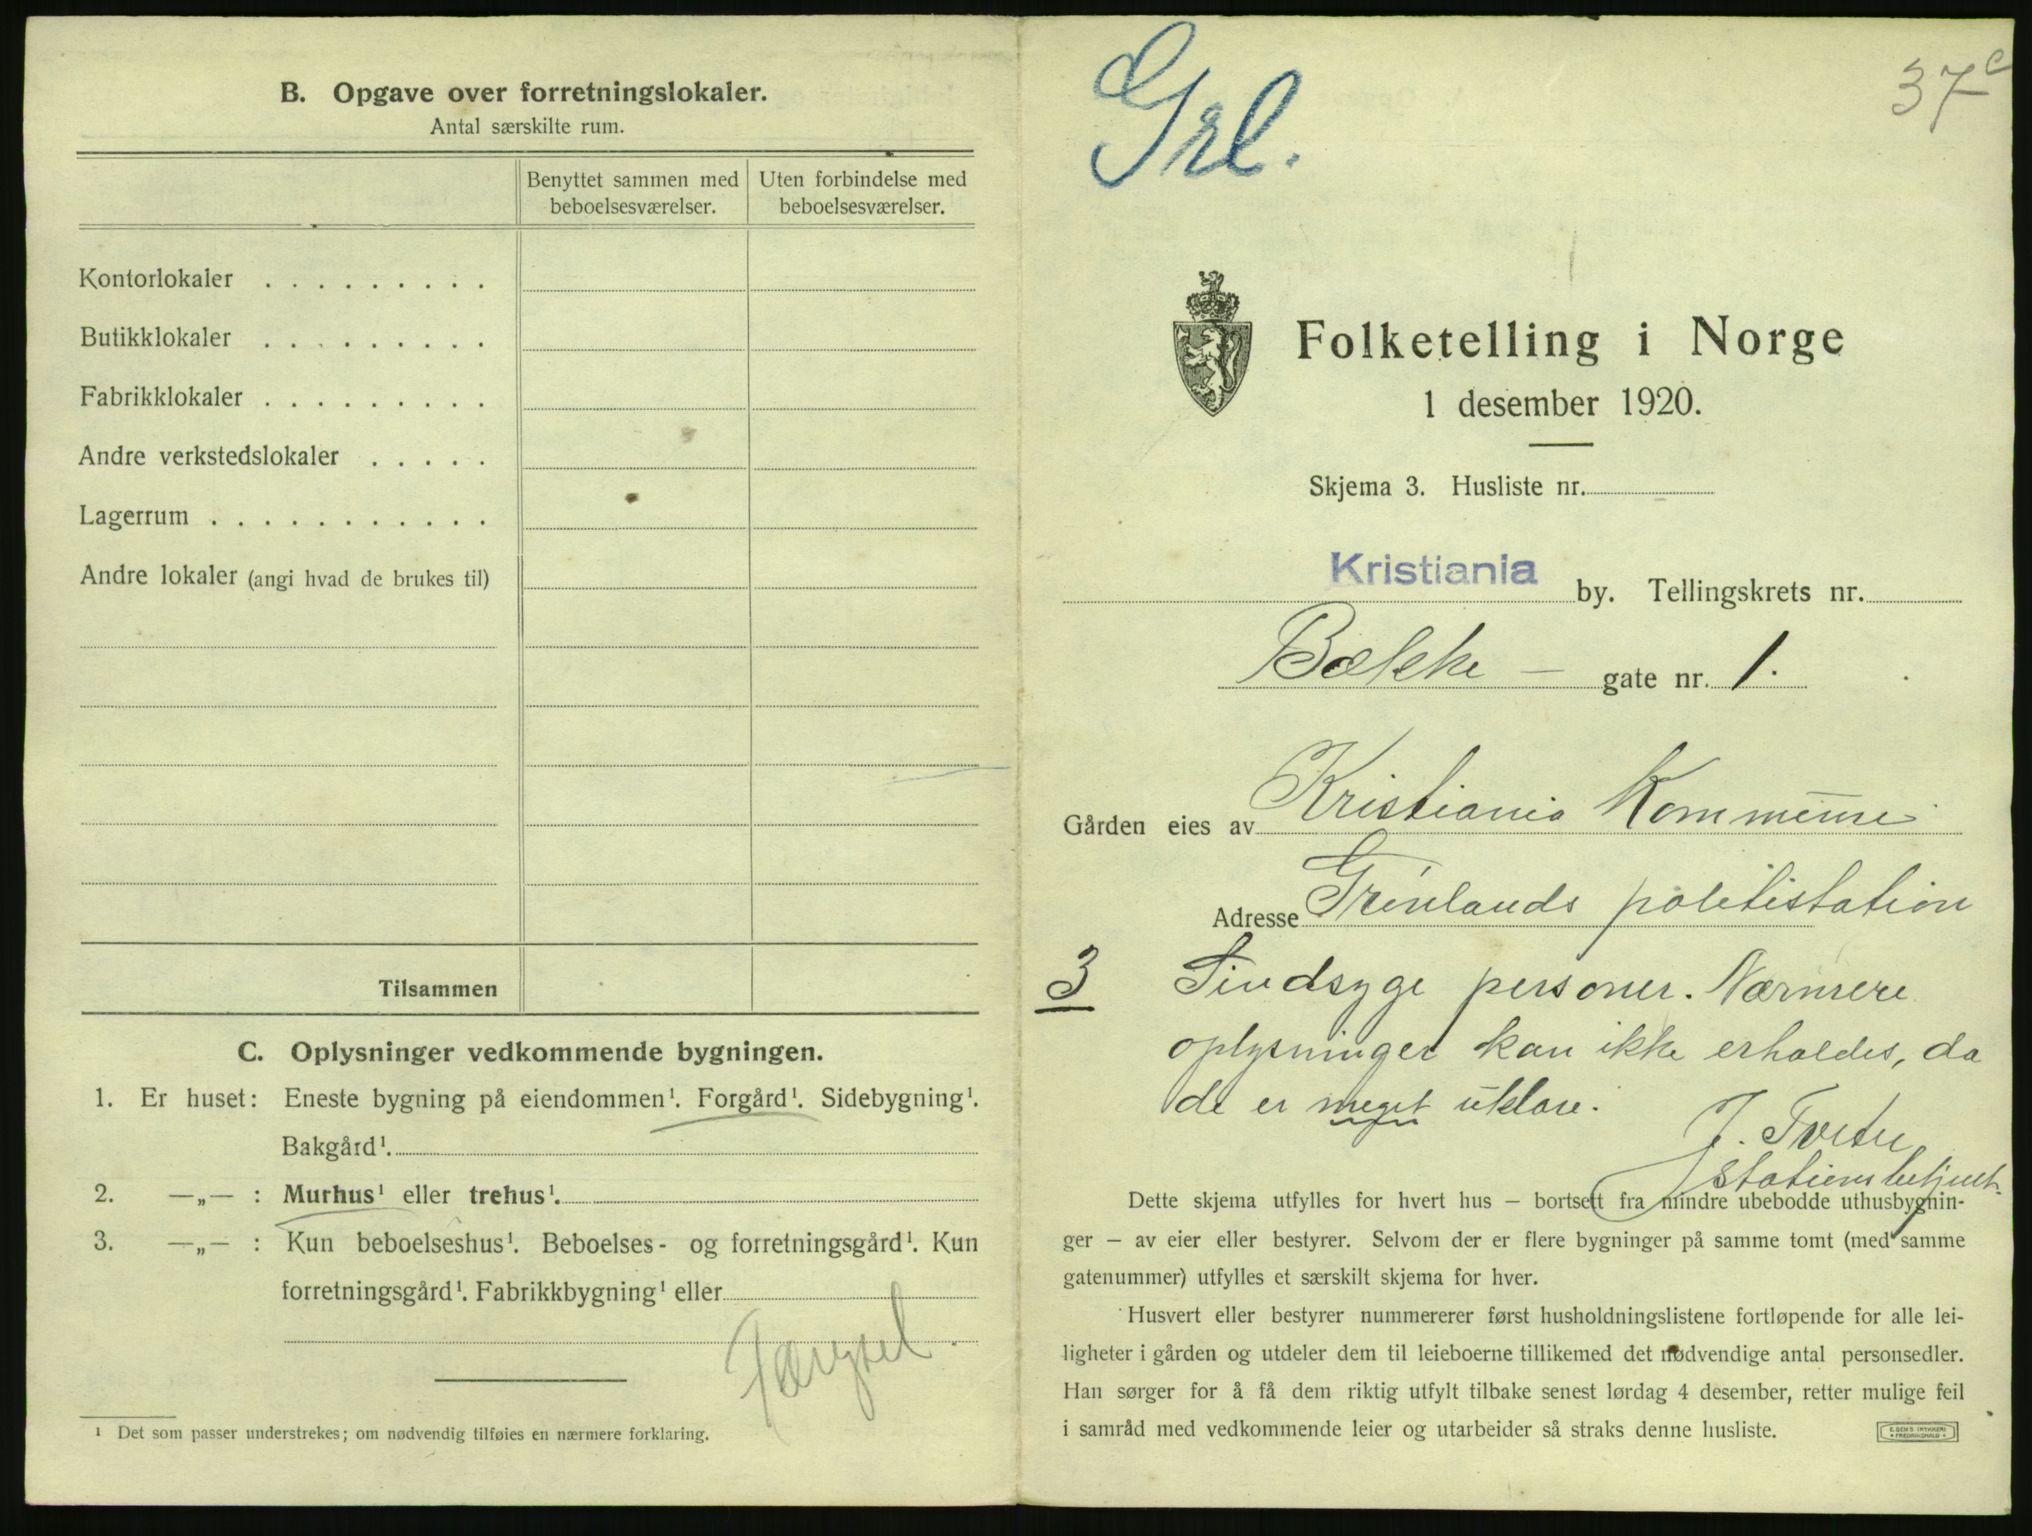 B. Opgave over forretningslokaler.
Antal særskilte rum.
Benyttet sammen med beboelsesværelser.
Uten forbindelse med beboelsesværelser.
Kontorlokaler . . . . . . . . .
Butikklokaler . . . . . . . . .
Fabrikklokaler . . . . . . . . .
Andre verkstedslokaler . . . . .
Lagerrum . . . . . . . . . . .
Andre lokaler (angi hvad de brukes til)
Tilsammen
C. Oplysninger vedkommende bygningen.
1. Er huset: Eneste bygning på eiendommen¹. Forgård¹. Sidebygning¹.
Bakgård¹.
2. —„— : Murhus¹ eller trehus¹.
3. —„— : Kun beboelseshus¹. Beboelses- og forretningsgård¹. Kun
forretningsgård¹. Fabrikkbygning¹ eller
Fængsel
¹ Det som passer understrekes; om nødvendig tilføies en nærmere forklaring.
Grl.
37c
Folketelling i Norge
1 desember 1920.
Skjema 3. Husliste nr.
Kristiania by. Tellingskrets nr.
Bække – gate nr. 1.
Gården eies av Kristiania Kommune
Adresse Grønlands politistation
3 Sindsyge personer. Nærmere
oplysninger kan ikke erholdes, da
de er meget uklare.
J. Tveter
stationsbetjent.
Dette skjema utfylles for hvert hus – bortsett fra mindre ubebodde uthusbygnin-
ger – av eier eller bestyrer. Selvom der er flere bygninger på samme tomt (med samme
gatenummer) utfylles et særskilt skjema for hver.
Husvert eller bestyrer nummererer først husholdningslistene fortløpende for alle lei-
ligheter i gården og utdeler dem til leieboerne tillikemed det nødvendige antal personsedler.
Han sørger for å få dem riktig utfylt tilbake senest lørdag 4 desember, retter mulige feil
i samråd med vedkommende leier og utarbeider så straks denne husliste.